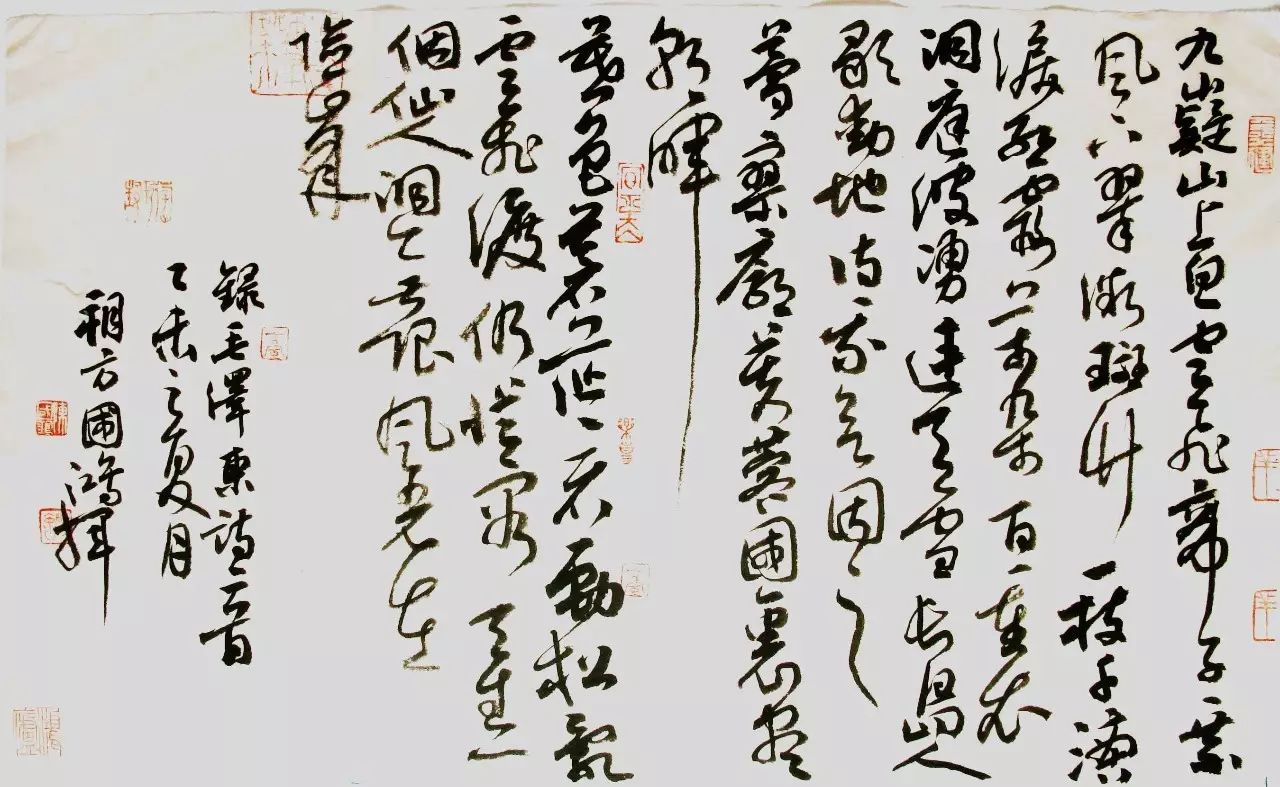 九嶷山上白雲飛帝子乘
風下翠微斑竹一枝千滴
淚紅霞萬朵百重衣
洞庭波湧連天雪長島人
歌動地詩我欲因之
夢寥廓芙蓉國裏盡
朝暉
暮色蒼茫看勁松亂
雲飛渡仍從容天生一
個仙人洞無限風光在
險峰
錄毛澤東詩二首
乙未之夏月
方圃鴻